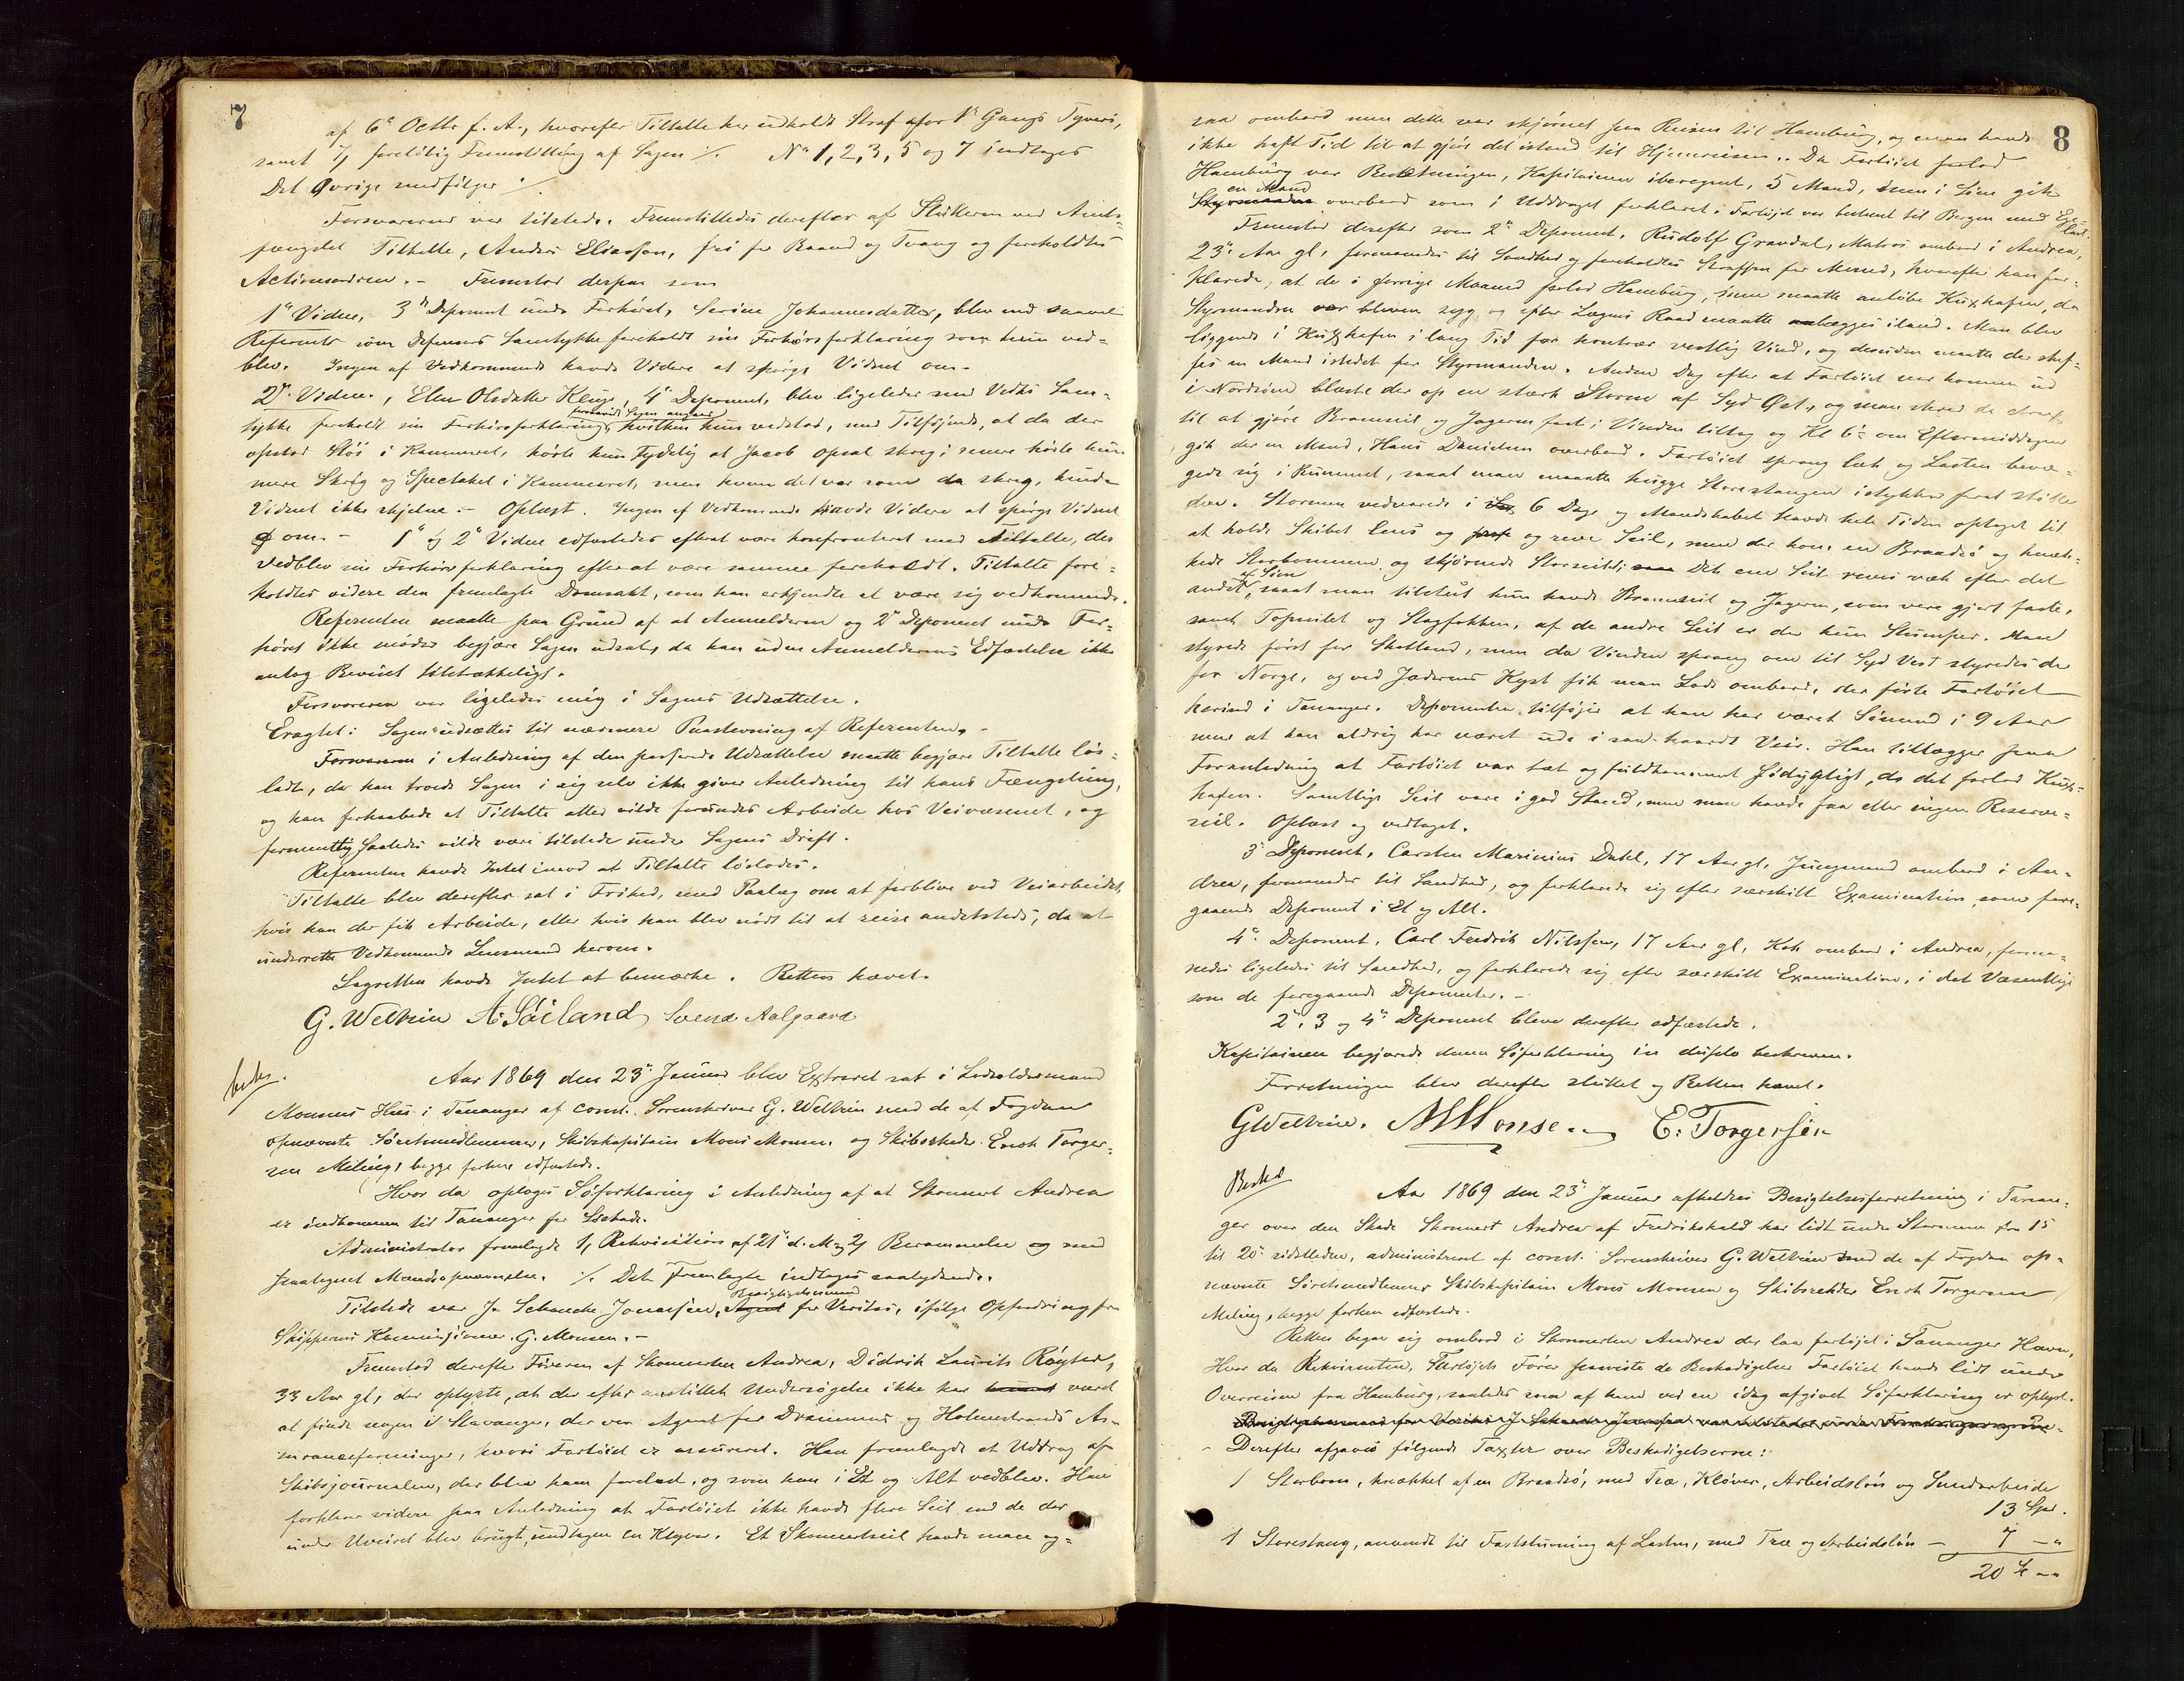 7
af 6te Octbr f. A., hvorefter Tiltalte har udholdt Straf for 1ste Gangs Tyveri,
samt 7, foreløbig Fremstilling af Sagen ./. No 1, 2, 3, 5 og 7 indtages
Det Øvrige medfølger ./.
Forsvareren var tilstede. Fremstilledes derefter af Slutteren ved Amts-
fængslet Tiltalte, Anders Eliassen, fri for Baand og Tvang og foreholdtes
Actionsordren. - Fremstod derpaa som
1te Vidne, 3die Deponent under Forhøret, Serine Johannesdatter, blev med saavel
Referents som Defensors Samtykke foreholdt sin Forhørsforklaring som hun ved-
blev. Ingen af Vedkommende havde Videre at spørge Vidnet om -
2det Vidne, Elen Olsdatter Kluge, 4de Deponent, blev ligeledes med Vedks Sam-
tykke foreholdt sin Forhørsforklaring, forsaavidt Sagen angaar hvilken hun vedstod, med Tilføjende, at da der
opstod Støi i Kammeret, hørte hun tydelig at Jacob Opsal skreg; senere hørte hun
mere Skrig og Spectakel i Kammeret, men hvem det var som da skreg, kunde
Vidnet ikke skjelne. - Oplæst. Ingen af Vedkommende havde Videre at spørge Vidnet
om. - 1te og 2det Vidne edfæstedes efterat være konfronteret med Tiltalte, der
vedblev sin Forhørsforklaring efter at være samme foreholdt. Tiltalte fore-
holdtes videre den fremlagte Domsakt, som han erkjendte at være sig vedkommende.
Referenten maatte paa Grund af at Anmelderen og 2den Deponent under For-
høret ikke møder begjære Sagen udsat, da han uden Anmelderens Edfæstelse ikke
antog Beviset tilstrækkeligt.
Forsvareren var ligeledes enig i Sagens Udsættelse.
Eragtet: Sagen udsættes til nærmere Paastævning af Referenten. -
Forsvareren i Anledning af den passerede Udsættelse maatte begjære Tiltalte løs-
ladt, da han troede Sagen i sig selv ikke giver Anledning til hans Fængsling,
og han forhaabede at Tiltalte atter vilde forundes Arbeide hos Veivæsenet, og
formentlig saaledes vilde være tilstede under Sagens Drift.
Referenten havde Intet imod at Tiltalte løslodes.
Tiltalte blev derefter sat i Frihed, med Paalæg om at forblive ved Veiarbeidet,
hvis han der fik Arbeide, eller hvis han blev nødt til at reise andetsteds, da at
underrette Vedkommende Lensmand herom.
Lagretten havde Intet at bemærke. Retten hævet.
G. Weltzin A. Søiland Svend Aalgaard
Aar 1869 den 23de Januar blev Extraret sat i Lodsoldermand
Monsens Hus i Tananger af const. Sorenskriver G. Weltzin med de af Fogden
opnævnte Søretsmedlemmer, Skibskapitain Mons Monsen og Skibsreder Enok Torger-
sen Meling, begge forhen edfæstede.
Hvor da optoges Søforklaring i Anledning af at Skonnert Andrea
er indkommen til Tananger for Søskade.
Administrator fremlagde 1, Rekvisition af 21de d. M. og 2, Berammelse og med
paategnet Mandsopnævnelse. ./. Det Fremlagte indtages saalydende.
Tilstede var J. Schancke Jonassen, Besigtigelsesmand for Veritas, ifølge Opfordring fra
Skipperens Kommissionær, G. Monsen. -
Fremstod derefter Føreren af Skonnerten Andrea, Didrik Laurits Røyter,
33 Aar gl, der oplyste, at der efter anstillet Undersøgelse ikke har været
at finde nogen i Stavanger, der var Agent for Drammens og Holmestrands As-
suranceforeninger, hvori Fartøiet er assureret. Han fremlagde et Uddrag af
Skibsjournalen, der blev ham forelæst, og som han i Et og Alt vedblev. Han
forklarer videre paa Anledning at Fartøiet ikke havde flere Seil end de der
under Uveiret blev brugt, undtagen en Klyver. Et Skonnertseil havde man og-
8
saa ombord men dette var skjørnet paa Reisen til Hamburg, og man havde
ikke haft Tid til at gjøre det istand til Hjemreisen. Da Fartøiet forlod
Hamburg var Besetningen, Kapitainen iberegnet, 5 Mand, men i Søen gik
en Mand overbord som i Uddraget forklaret. Fartøjet var bestemt til Bergen med
Fremstod derefter som 2den Deponent, Rudolf Gravdal, Matros ombord i Andrea,
23de Aar gl, formanedes til Sandhed og foreholdtes Straffen for Mened, hvorefter han for-
klarede, at de i forrige Maaned forlod Hamburg, men maatte anløbe Kuxhafen, da
Styrmanden var bleven syg og efter Lægens Raad maatte lægges iland. Man blev
liggende i Kuxhafen i lang Tid for kontrær vestlig Vind, og desuden maatte der skaf-
fes en Mand istedet for Styrmanden. Anden Dag efter at Fartøiet var kommen ud
i Nordsøen blæste der op en stærk Storm af Syd Ost, og man skred da strax
til at gjøre Bramseil og Jageren fast; Vinden tiltog og Kl 6 om Eftermiddagen
gik der en Mand, Hans Danielsen overbord. Fartøiet sprang læk og Lasten bevæ-
gede sig i Rummet, saaat man maatte hugge Storestangen istykker forat støtte
den. Stormen vedvarede i 6 Dage og Mandskabet havde hele Tiden optaget til
at holde Skibet læns og og reve Seil, men der kom en Braadsø og knæk-
kede Storbommen og skjørnede Storseilet; Det ene Seil reves væk efter det
andet, af Søen saaat man tilslut kun havde Bramseil og Jageren, som vare gjort faste,
samt Topseilet og Stagfokken, af de andre Seil er der kun Stumper. Man
styrede først for Skotland, men da Vinden sprang om til Syd Vest styredes der
for Norge, og ved Jæderens Kyst fik man Lods ombord, der førte Fartøiet
herind i Tananger. Deponenten tilføjer at han har været Sømand i 9 Aar
men at han aldrig har været ude i saa haardt Veir. Han tillægger paa
Foranledning at Fartøiet var tæt og fuldkomment sødygtigt, da det forlod Kux-
hafen. Samtlige Seil vare i god Stand, men man havde faa eller ingen Reserve-
seil. Oplæst og vedtaget.
3die Deponent, Carsten Marinius Dahl, 17 Aar gl, Jungmand ombord i An-
drea, formanedes til Sandhed, og forklarede sig efter særskilt Examination, som fore-
gaaende Deponent i Et og Alt.
4de Deponent, Carl Fredrik Nilssen, 17 Aar gl, Kok ombord i Andrea, forma-
nedes ligeledes til Sandhed, og forklarede sig efter særskilt Examination, i det Væsentlige
som de foregaaende Deponenter. -
2den, 3 og 4de Deponent bleve derefter edfæstede.
Kapitainen begjærede denne Søforklaring in duplo beskreven.
Forretningen blev derefter sluttet og Retten hævet.
GWeltzin. MMonsen E. Torgersen
Besked
Aar 1869 den 23de Januar afholdtes Besigtelsesforretning i Tanan-
ger over den Skade Skonnert Andrea af Fredrikshald har lidt under Stormene fra 15
til 20de sidstleden, administreret af const. Sorenskriver G. Weltzin med de af Fogden op-
nævnte Søretsmedlemmer Skibskapitain Mons Monsen og Skibsreder Enok Torgersen
Meling, begge forhen edfæstede.
Retten begav sig ombord i Skonnerten Andrea der laa fortøjet i Tananger Havn,
Hvor da Rekvirenten, Fartøjets Fører paaviste de Beskadigelser Fartøiet havde lidt under
Overreisen fra Hamburg, saaledes som af ham ved en idag afgivet Søforklaring er oplyst.
Derefter afgaves følgende Taxter over Beskadigelserne:
1 Storbom, knækket af en Braadsø, med Træ, Kløver, Arbeidsløn og Smedarbeide
13 Spd.
1 Storestang, anvendt til Faststuvning af Lasten, med Træ og Arbeidsløn - 7 - "
20 Spd - "